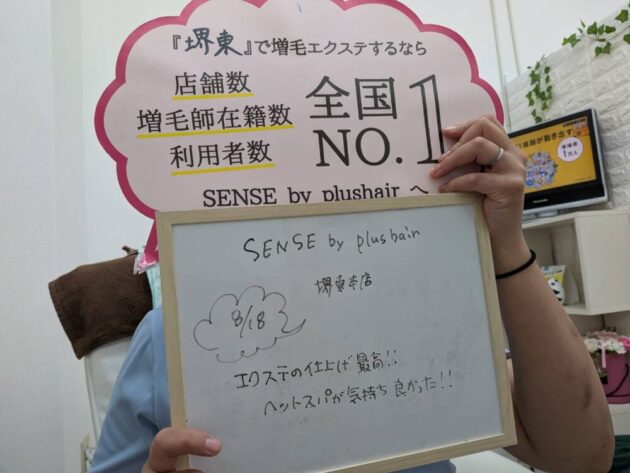 『堺東』で増毛エクステするなら
店舗数
増毛師在籍数
利用者数
全国
NO.1
SENSE by plushair へ
SENSE by plushair
堺東本店
8/18
エクステの仕上げ最高!!
ヘットスパが気持ち良かった!!
が動き出す
来場者
1万人
Panasonic